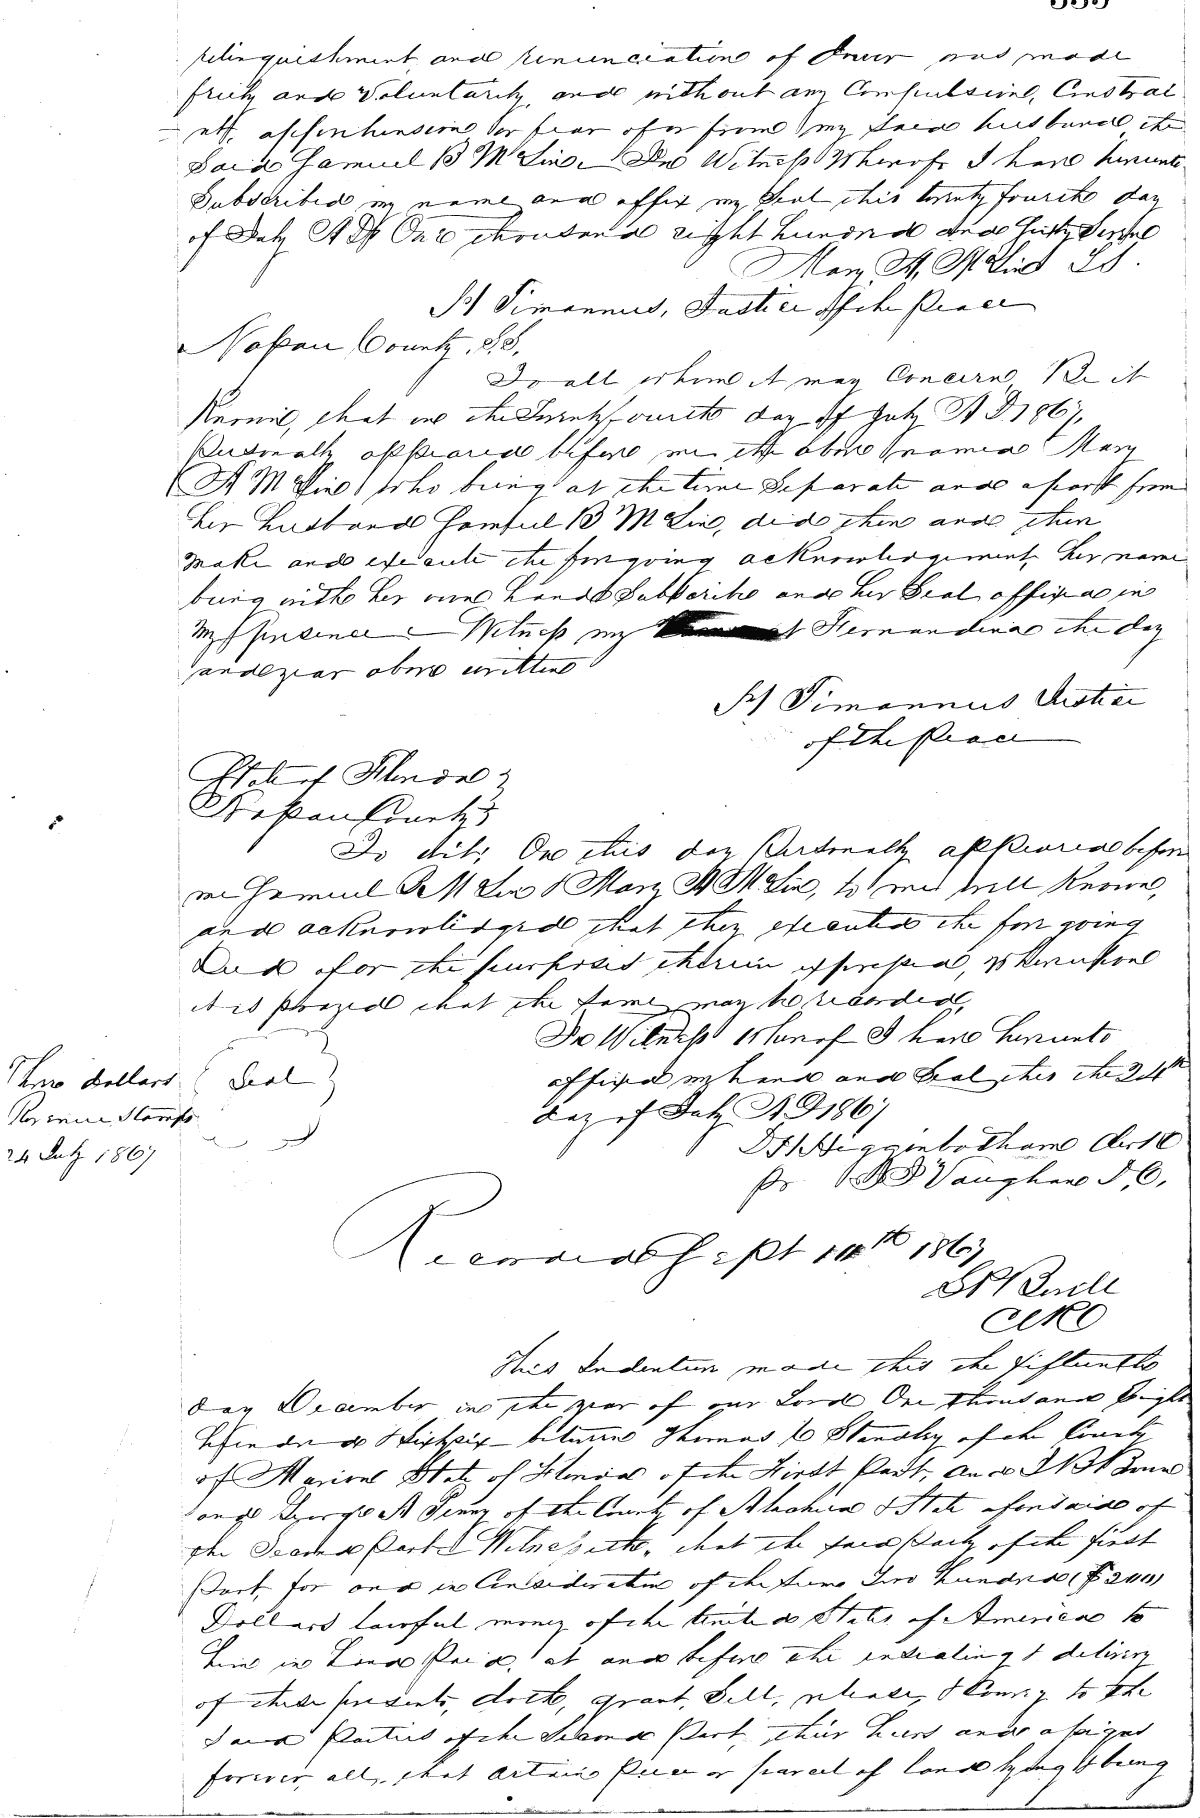 relinquishment and renunciation of Dower was made
freely and Voluntarily, and without any Compulsion, Constrai
nt, apprehension or fear of or from my said husband the
Said Samuel B McLin. In Witness Whereof I have hereunto
Subscribed my name and affix my Seal this twenty fourth day
of July A D One thousand eight hundred and Sixty Seven
Mary A. McLin LS.
Timannus, Justice of the Peace
Nassau County, S.S.
To all whom it may Concern Be it
Known, that on the Twenty fourth day of July A D 1867,
Personally appeared before me the above named Mary
A McLin who being at the time Separate and apart from
her husband Samuel B McLin, did then and there
make and execute the foregoing acknowledgement, her name
being with her own hand Subscribe and her Seal affixed in
my presence Witness my at Fernandina the day
and year above written
Timannus Justice
of the Peace
State of Florida
Nassau County
To wit; On this day Personally appeared before
me Samuel B McLin & Mary A McLin, to me well Known,
and acknowledged that they executed the foregoing
Deed for the purposes therein expressed, whereupon
it is prayed that the same may be recorded,
In Witness Whereof I have hereunto
affixed my hand and Seal this the 24th
day of July A D 1867
Higginbotham Clerk
pr Vaughan D, C,
Three dollars
Revenue Stamps
24 July 1867
Seal
Recorded Sept 14th 1867
Clk
This Indenture made this the fifteenth
day December in the year of our Lord One thousand Eight
Hundred & Sixty six between Thomas C Standley of the County
of Marion State of Florida of the First Part, and
and George A of the County of Alachua & State aforesaid of
the Second Part Witnesseth, that the said Party of the first
Part, for and in Consideration of the sum Two hundred ($200)
Dollars lawful money of the United States of America to
him in hand Paid, at and before the ensealing & delivery
of these presents, doth, grant, Sell, release, & Convey to the
said Parties of the Second Part, their heirs and assigns
forever, all, that certain Piece or parcel of land lying & being